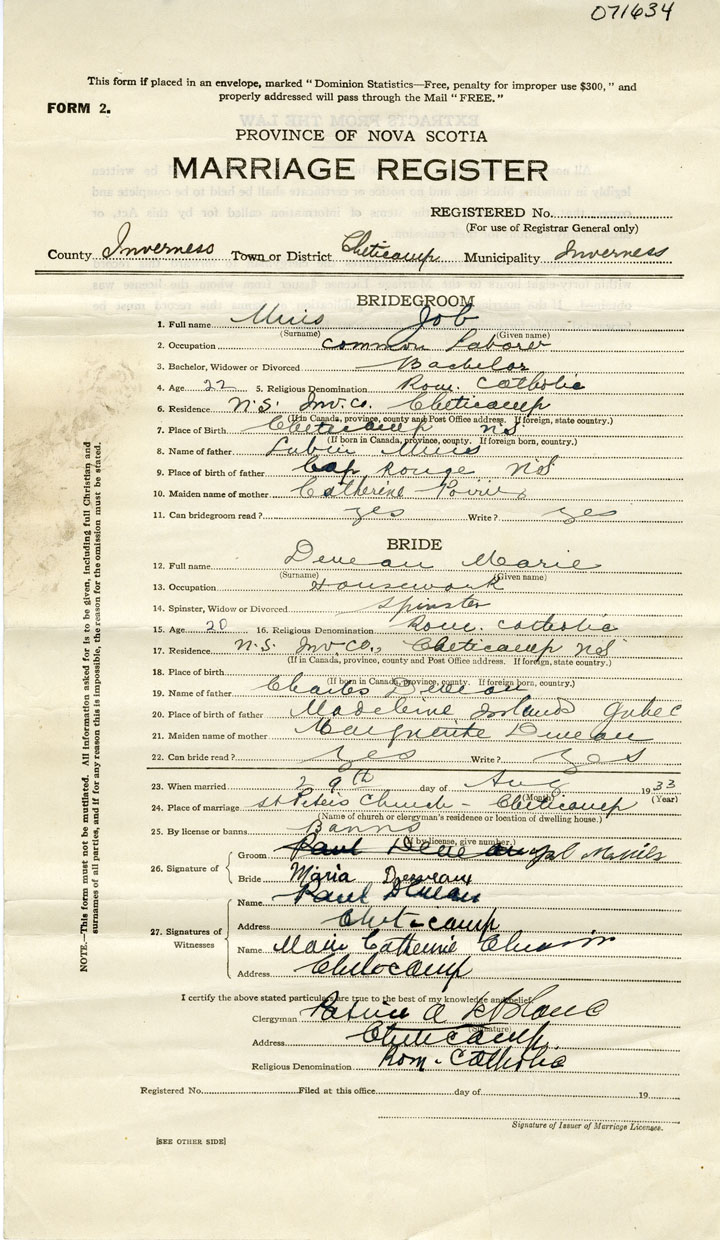 071634
This form if placed in an envelope, marked "Dominion Statistics—Free, penalty for improper use $300," and
properly addressed will pass through the Mail "FREE."
FORM 2.
PROVINCE OF NOVA SCOTIA
MARRIAGE REGISTER
REGISTERED No.
(For use of Registrar General only)
County Inverness Town or District Cheticamp Municipality Inverness
BRIDEGROOM
1. Full name Muis Job
(Surname) (Given name)
2. Occupation common Laborer
3. Bachelor, Widower or Divorced Bachelor
4. Age 22 5. Religious Denomination Rom. Catholic
6. Residence N.S. Inv. Co. Cheticamp
(If in Canada, province, county and Post Office address. If foreign, state country.)
7. Place of Birth Cheticamp NS
(If born in Canada, province, county. If foreign born, country.)
8. Name of father Lubin Muis
9. Place of birth of father Cap Rouge NS
10. Maiden name of mother Catherine Poirier
11. Can bridegroom read? yes Write? yes
BRIDE
12. Full name Deveau Marie
(Surname) (Given name)
13. Occupation Housework
14. Spinster, Widow or Divorced Spinster
15. Age 20 16. Religious Denomination Rom. Catholic
17. Residence N.S. Inv. Co., Cheticamp NS
(If in Canada, province, county and Post Office address. If foreign, state country.)
18. Place of birth
(If born in Canada, province, county. If foreign born, country.)
19. Name of father Charles Deveau
20. Place of birth of father Madeleine Islands Qubec
21. Maiden name of mother Marguerite Deveau
22. Can bride read? yes Write? yes
23. When married 29th day of Aug 1933
(Month) (Year)
24. Place of marriage St Peters Church - Cheticamp
(Name of church or clergyman's residence or location of dwelling house.)
25. By license or banns Banns
(If by license, give number.)
26. Signature of
Groom Paul Deveau
Bride Maria Deveau
27. Signatures of Witnesses
Name Paul Deveau
Address Cheticamp
Name Catherine
Address Cheticamp
I certify the above stated particulars are true to the best of my knowledge and belief.
Clergyman Patrice A LeBlanc
(Signature)
Address Cheticamp.
Religious Denomination Rom. Catholic
Registered No. Filed at this office day of 19
Signature of Issuer of Marriage Licenses.
[SEE OTHER SIDE]
NOTE.—This form must not be mutilated. All information asked for is to be given, including full Christian and
surnames of all parties, and if for any reason this is impossible, the reason for the omission must be stated.